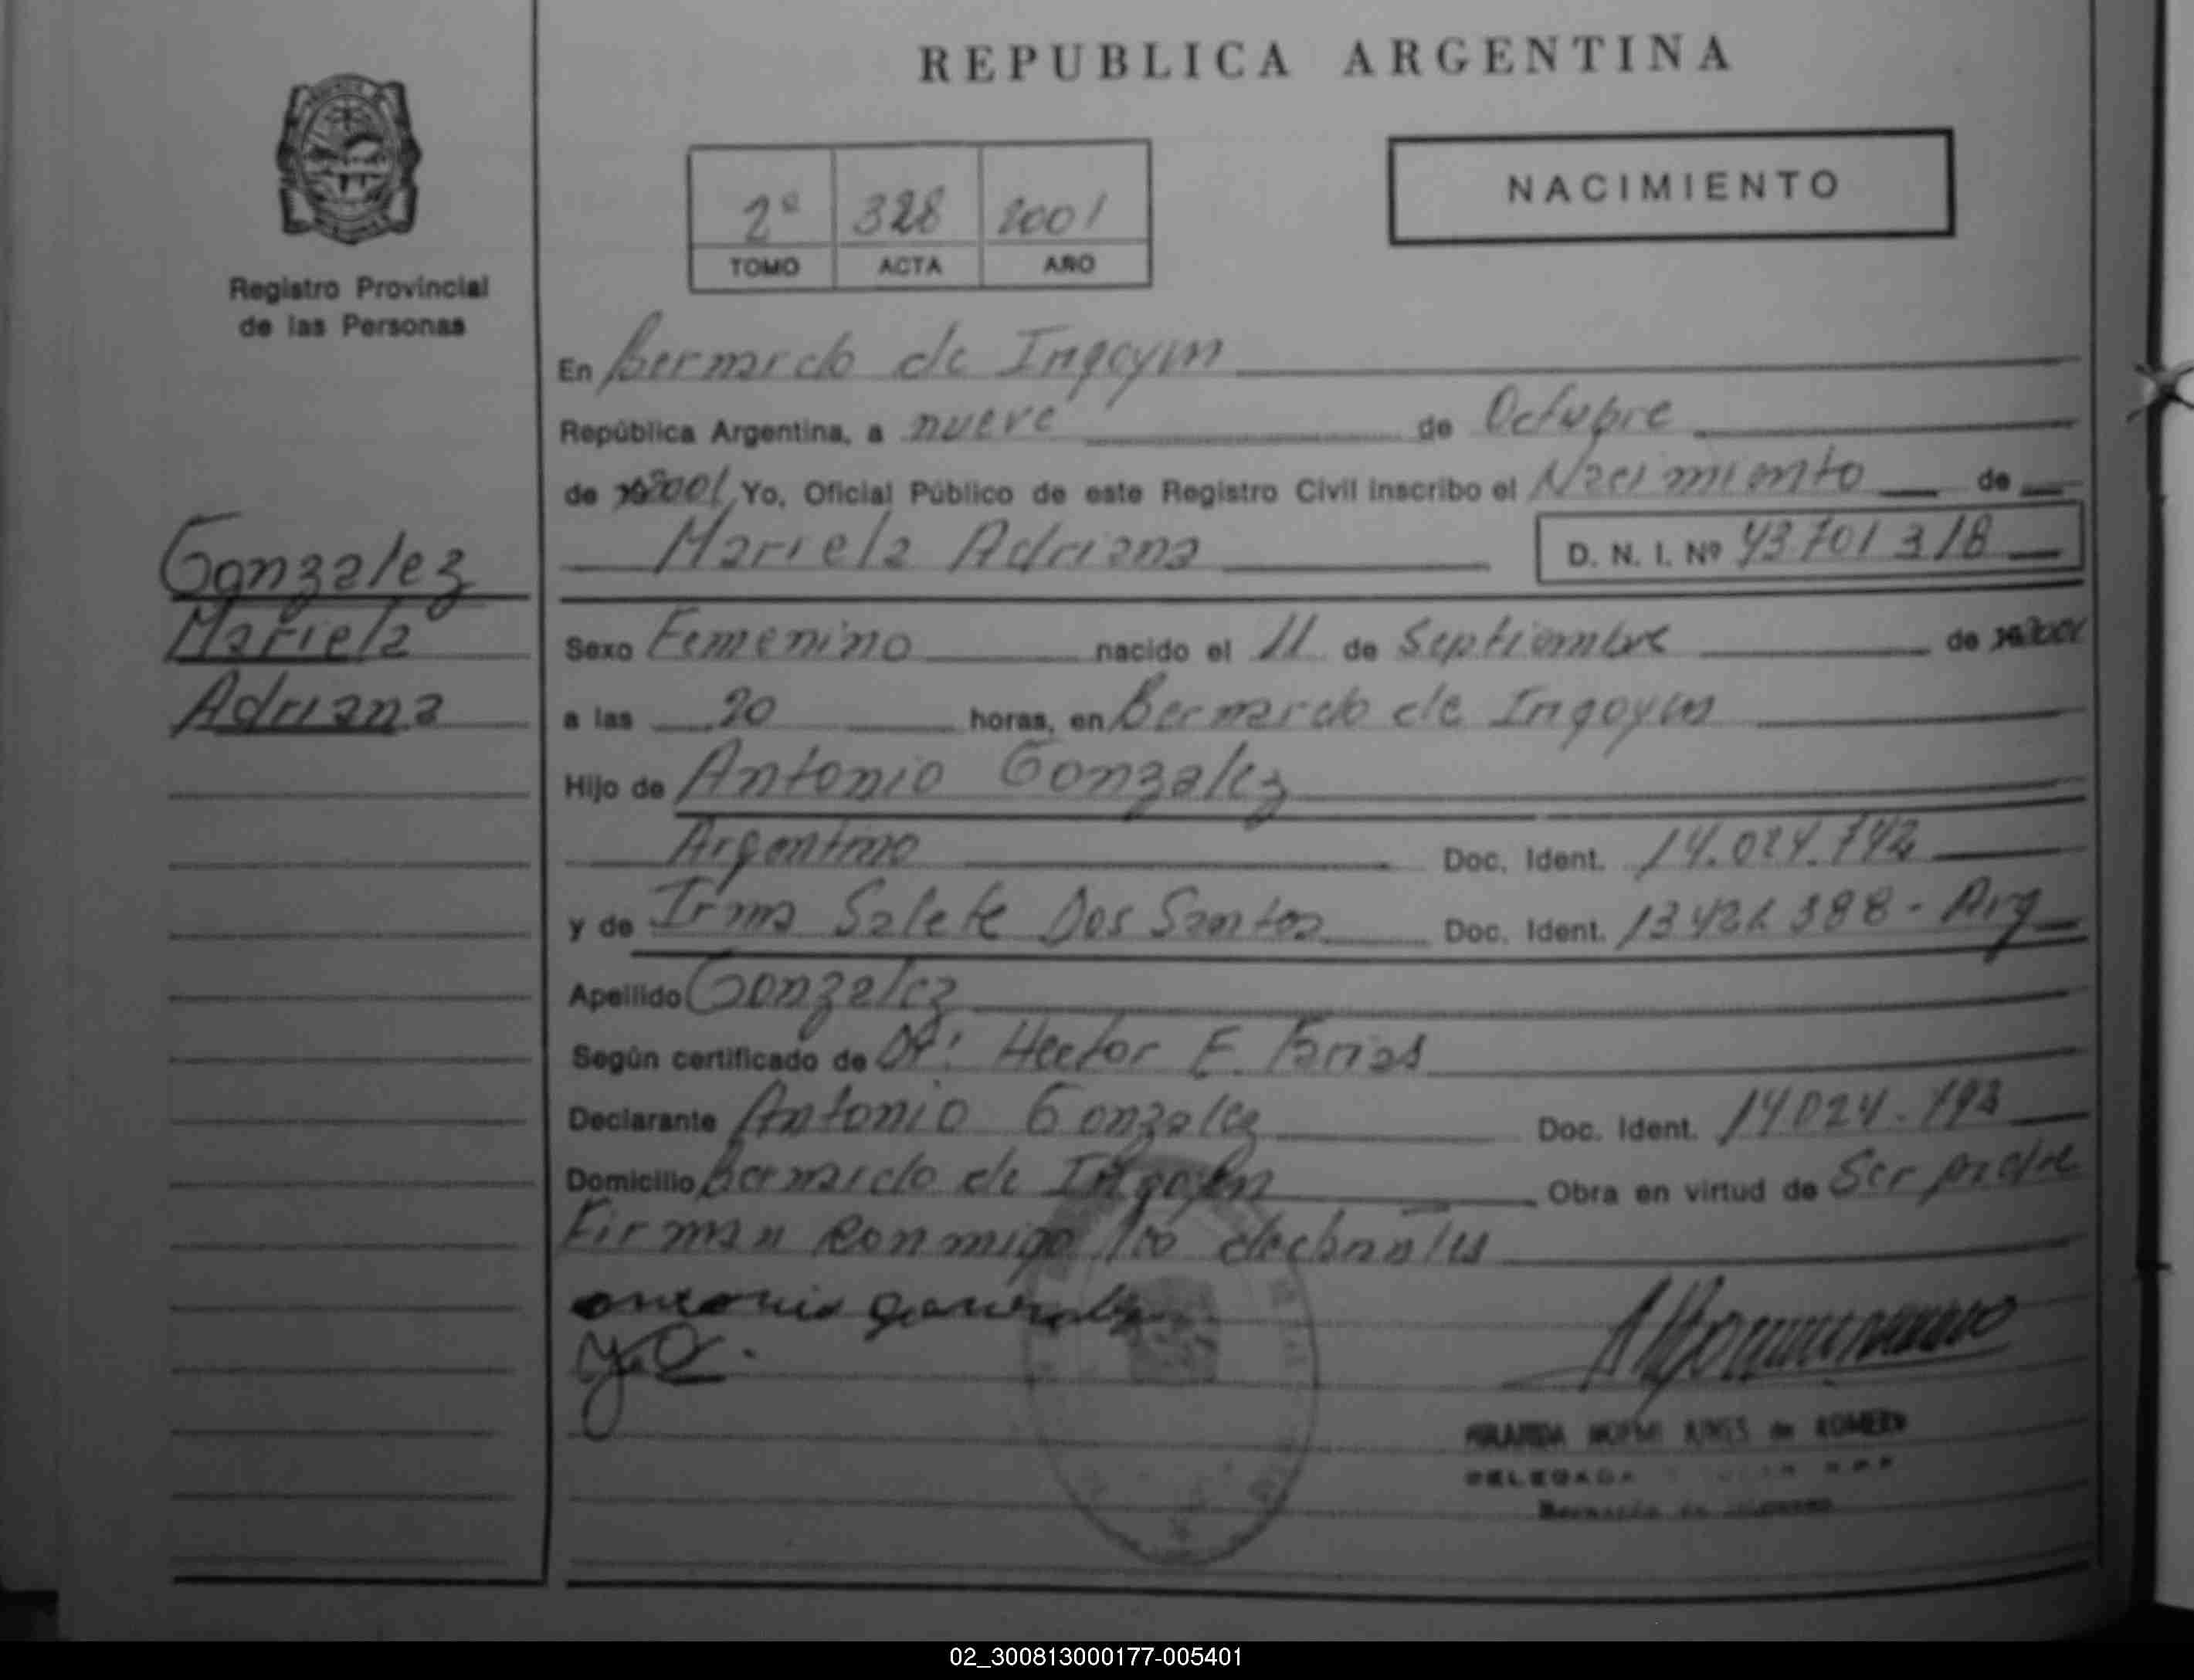 REPUBLICA ARGENTINA
NACIMIENTO
2º 328 2001
TOMO ACTA AÑO
Registro Provincial
de las Personas
En Bernardo de Irigoyen
República Argentina, a nueve de Octubre
de 2001 Yo, Oficial Público de este Registro Civil inscribo el Nacimiento de
Mariela Adriana D. N. I. Nº 43701318
Gonzalez
Mariela
Adriana
Sexo Femenino nacido el 11 de Septiembre de 2001
a las 20 horas, en Bernardo de Irigoyen
Hijo de Antonio Gonzalez
Argentino Doc. Ident.
y de Irma Salete Dos Santos Doc. Ident. - Arg
Apellido Gonzalez
Según certificado de Dr: Hector E. Farias
Declarante Antonio Gonzalez Doc. Ident.
Domicilio Bernardo de Irigoyen Obra en virtud de Ser padre
Firman conmigo los declarantes
antonio gonzalez
NOEMI de ROMERO
DELEGADA
Bernardo de
02_300813000177-005401